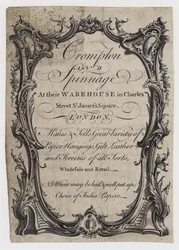 Crompton
AND
Spinnage
At their WAREHOUSE in Charles
Street St James's Square,
LONDON,
Makes & Sells Great Variety of
Paper Hangings, Gilt Leather
and Screens of all Sorts,
Wholesale and Retail.
NB Where may be had, well put up,
Choice of India Papers.